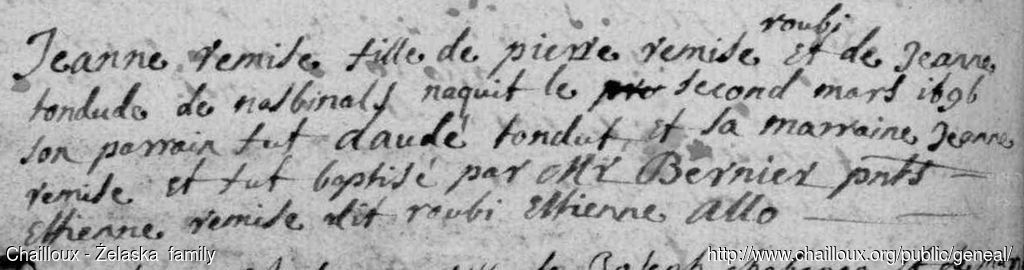 roubi
Jeanne remise fille de pierre remise Et de Jeanne
tondude de nasbinals naquit le second mars 1696
son parrain fut daudé tondut Et sa marraine Jeanne
remise Et fut baptisé par Mr Bernier pnts
Estienne remise dit roubi Estienne Allo
Chailloux - Želaska family
http://www.chailloux.org/public/geneal/